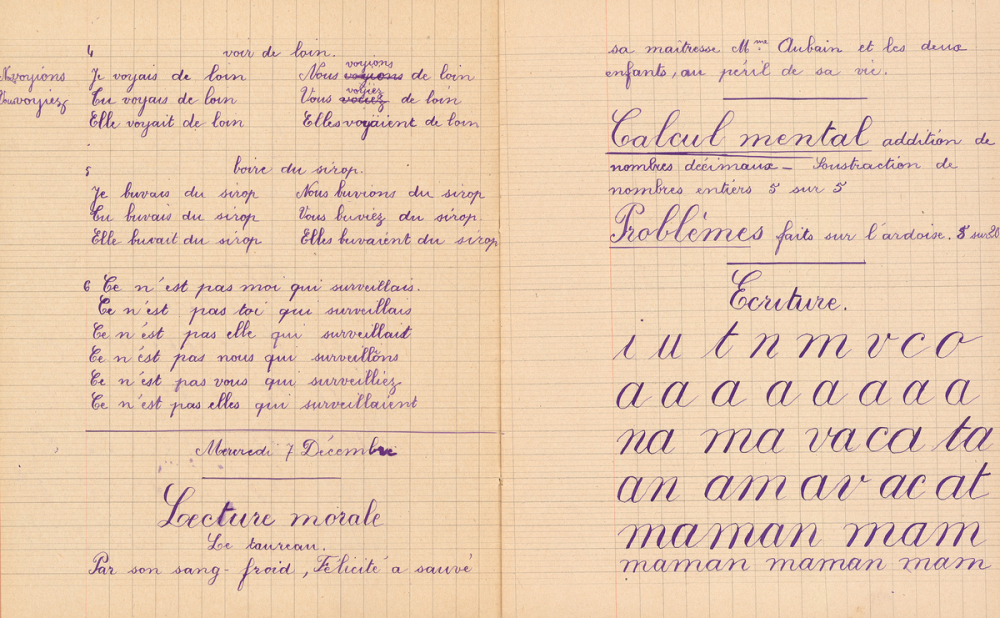 4 voir de loin.
voyions
Nous voyions Je voyais de loin Nous voyions de loin
voyiez
Vous voyiez Tu voyais de loin Vous voliez de loin
Elle voyait de loin Elles voyaient de loin
5 boire du sirop.
Je buvais du sirop Nous buvions du sirop
Tu buvais du sirop Vous buviez du sirop.
Elle buvait du sirop Elles buvaient du sirop
6 Ce n'est pas moi qui surveillais.
Ce n'est pas toi qui surveillais
Ce n'est pas elle qui surveillait
Ce n'est pas nous qui surveillions
Ce n'est pas vous qui surveilliez
Ce n'est pas elles qui surveillaient
Mercredi 7 Décembre
Lecture morale
Le taureau.
Par son sang-froid, Félicité a sauvé
sa maîtresse Mme Aubain et les deux
enfants, au péril de sa vie.
Calcul mental addition de
nombres décimaux – Soustraction de
nombres entiers 5 sur 5
Problèmes faits sur l'ardoise. 5 sur 20
Ecriture.
i u t n m v c o
a a a a a a a a
na ma va ca ta
an am av ac at
maman mam
maman maman mam